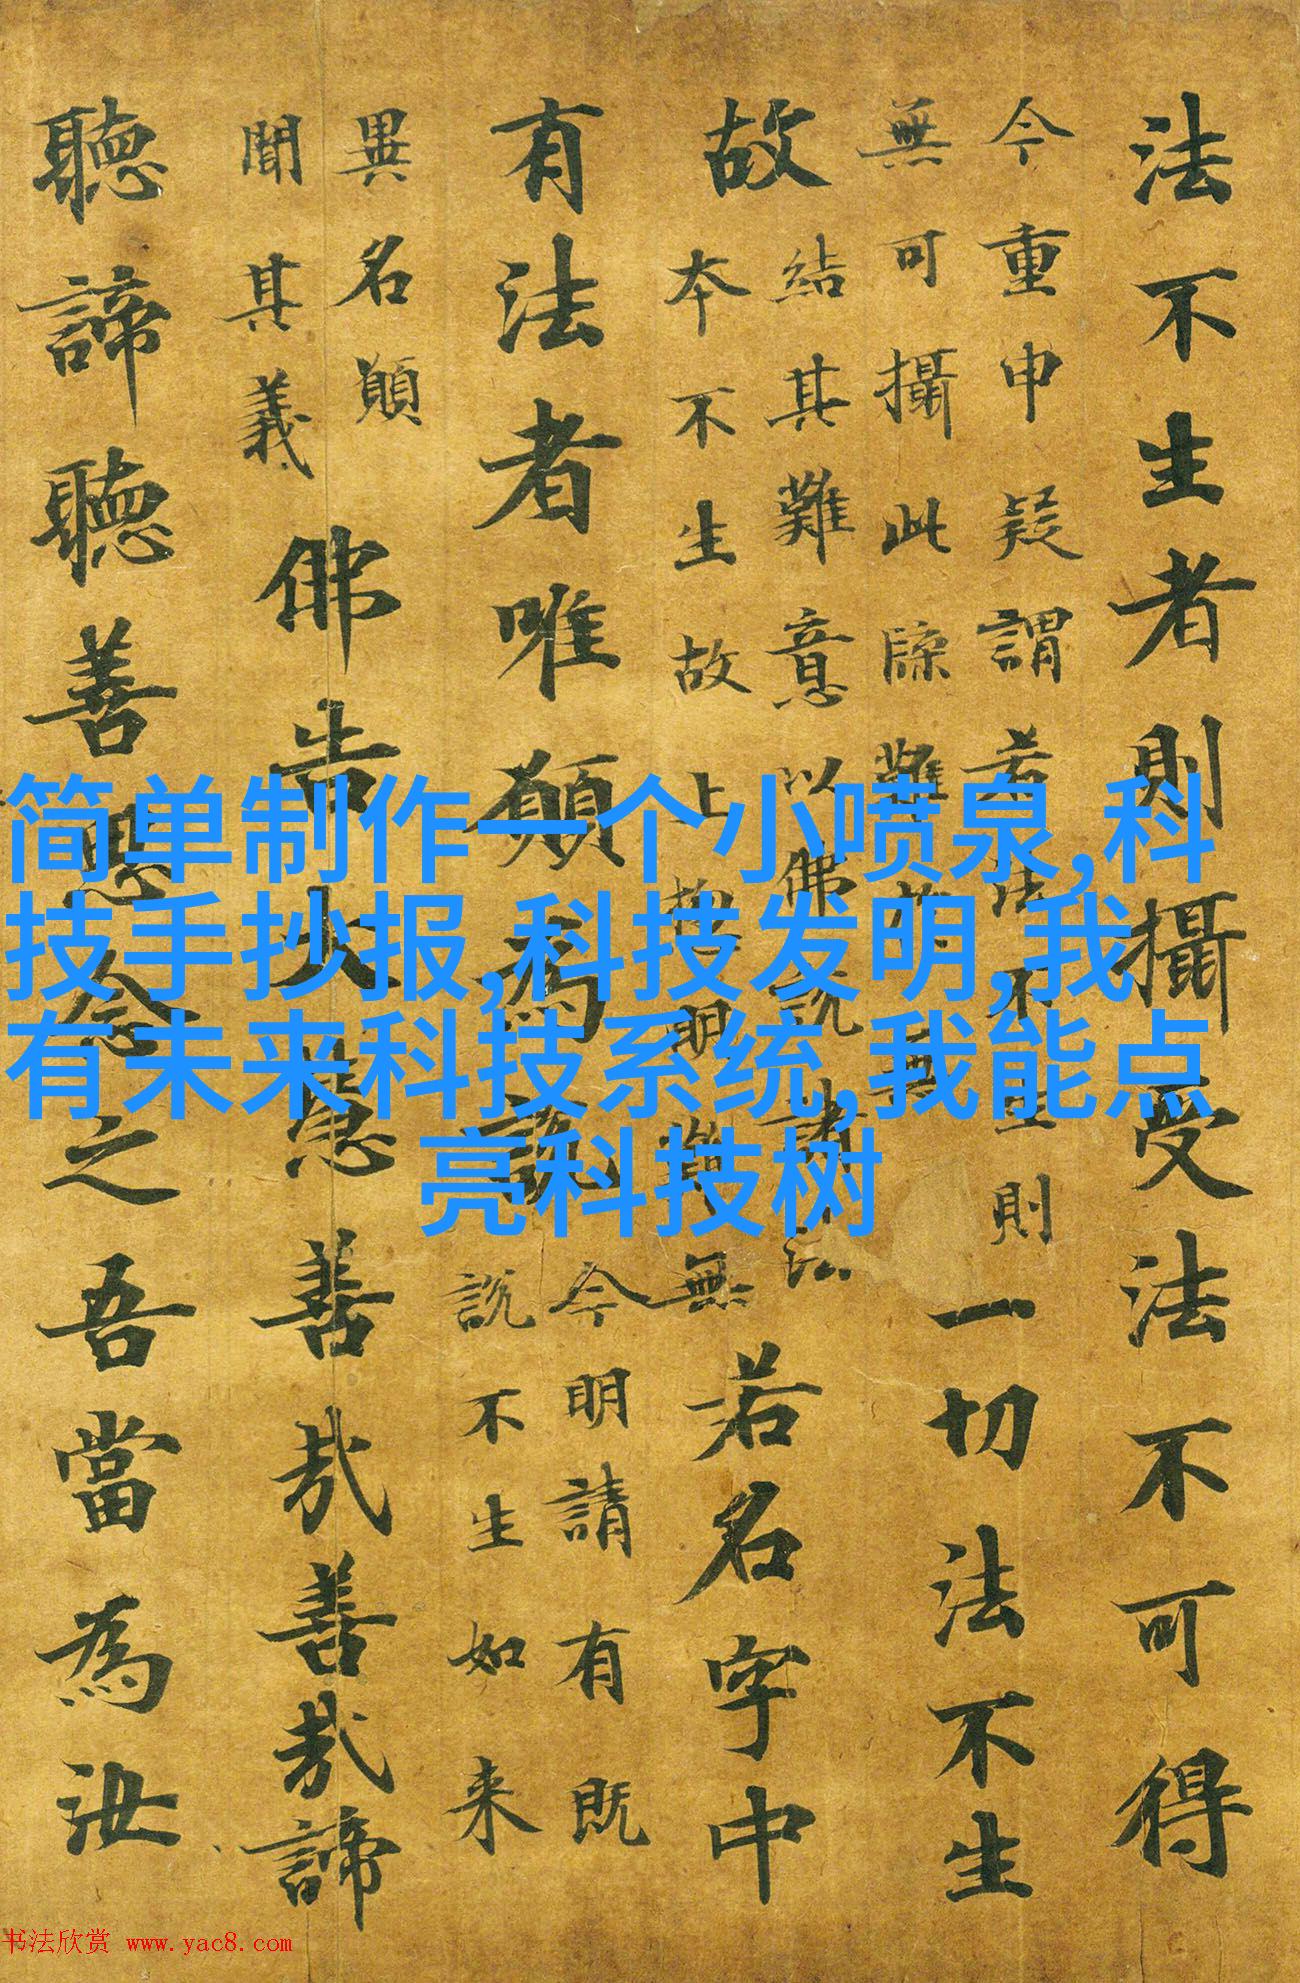 法不生者則攝受法不可得
今重申疑謂若法不生則
無可攝此牒難故無
一切法不生
故
結其難意以佛説諸法
本不生故上明難無
若名字中
有法者唯願為説
今明請有既
説不生如来
異名願
聞其義
佛告大慧善哉善哉諦
聽諦聽善思念之吾當為汝
简单制作一个小喷泉,科
技手抄报,科技发明,我
有未来科技系统,我能点
亮科技树
书法欣赏 www.yac8.com